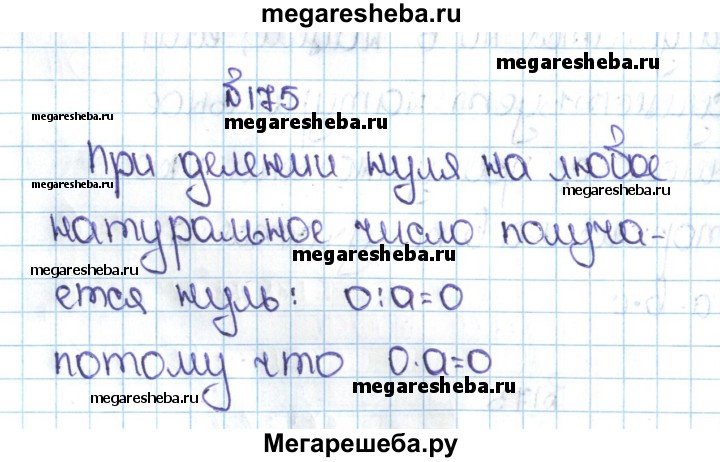 megaresheba.ru
megaresheba.ru
№175
megaresheba.ru
megaresheba.ru
При делении нуля на любое
megaresheba.ru
megaresheba.ru
натуральное число получа-
megaresheba.ru
megaresheba.ru
ется нуль: 0:a=0
потому что 0·a=0
megaresheba.ru
megaresheba.ru
Мегарешеба.ру